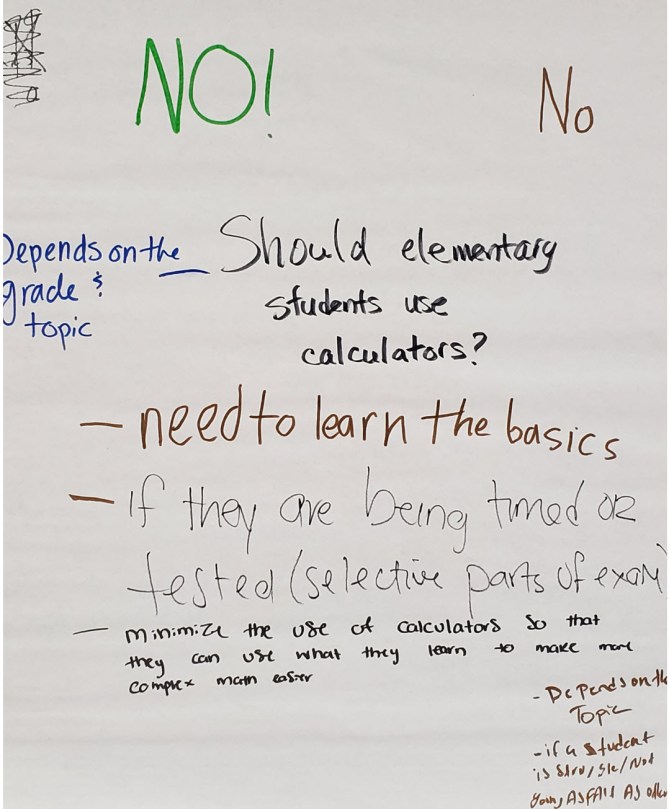 NO!
No
Depends on the
grade &
topic
Should elementary
students use
calculators?
- need to learn the basics
- if they are being timed or
tested (selective parts of exam)
- minimize the use of calculators so that
they can use what they learn to make more
complex math easier
- Depends on the
Topic
- if a student
is struggle/Not
AS FAST AS